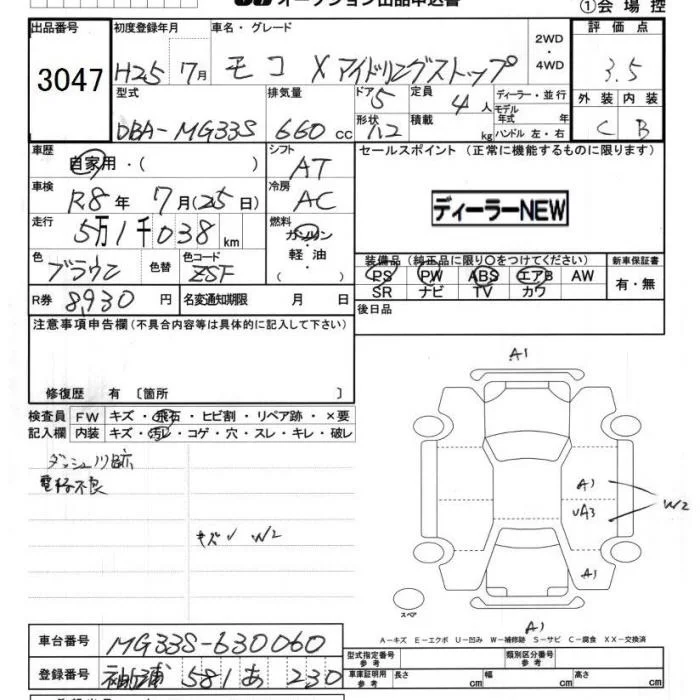 オークション出品申込書
①会場控
出品番号 初度登録年月 車名・グレード 2WD・4WD 評価点
3047 H25 7月 モコ Xアイドリングストップ 3.5
型式 排気量 ドア 5 定員 4人 ディーラー・並行 外装 内装
DBA-MG33S 660cc 形状 積載 kg モデル年式 年 ハンドル 左・右 C B
車歴 自家用・( ) シフト AT セールスポイント (正常に機能するものに限ります)
車検 R8年 7月(25日) 冷房 AC ディーラーNEW
走行 5万1千038km 燃料 ガソリン・軽油 ( )
色 ブラウン 色替 色コード ZSF 装備品 (純正品に限り〇をつけてください) 新車保証書
PS PW ABS エアB AW 有・無
SR ナビ TV カワ
R券 8,930円 名変通知期限 月 日 後日品
注意事項申告欄 (不具合内容等は具体的に記入して下さい)
修復歴 有 〔箇所 〕
検査員 FW キズ・飛石・ヒビ割・リペア跡・×要
記入欄 内装 キズ・汚レ・コゲ・穴・スレ・キレ・破レ
ダッシュ
不良
キズ W2
A1
A1
UA3
W2
A1
スペア
A1
A-キズ E-エクボ U-凹み W-補修跡 S-サビ C-腐食 XX-交換済
車台番号 MG33S-630060 型式指定番号 参考 類別区分番号 参考
登録番号 袖ヶ浦 581 あ 230 車庫証明用 参考 長さ cm 幅 cm 高さ cm